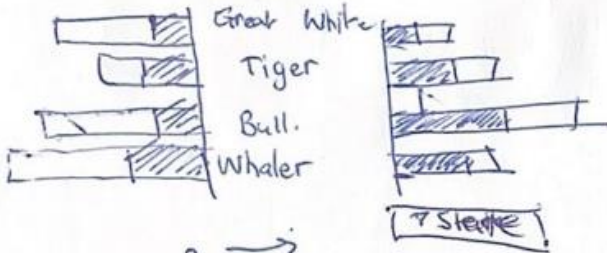 Great White
Tiger
Bull.
Whaler
? State